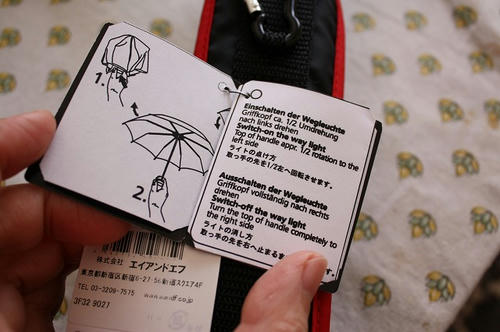 1.
2.
Einschalten der Wegleuchte
Griffkopf ca. 1/2 Umdrehung
nach links drehen
Switch-on the way light
Top of handle appr. 1/2 rotation to the
left side
ライトの点け方
取っ手の先を1/2左へ回転させます。
Ausschalten der Wegleuchte
Griffkopf vollständig nach rechts
drehen
Switch-off the way light
Turn the top of handle completely to
the right side
ライトの消し方
取っ手の先を右へ止まるま
株式会社 エイアンドエフ
東京都新宿区新宿6-27-56新宿スクエア4F
TEL 03-3209-7575 www.aandf.co.jp
3F32 9027